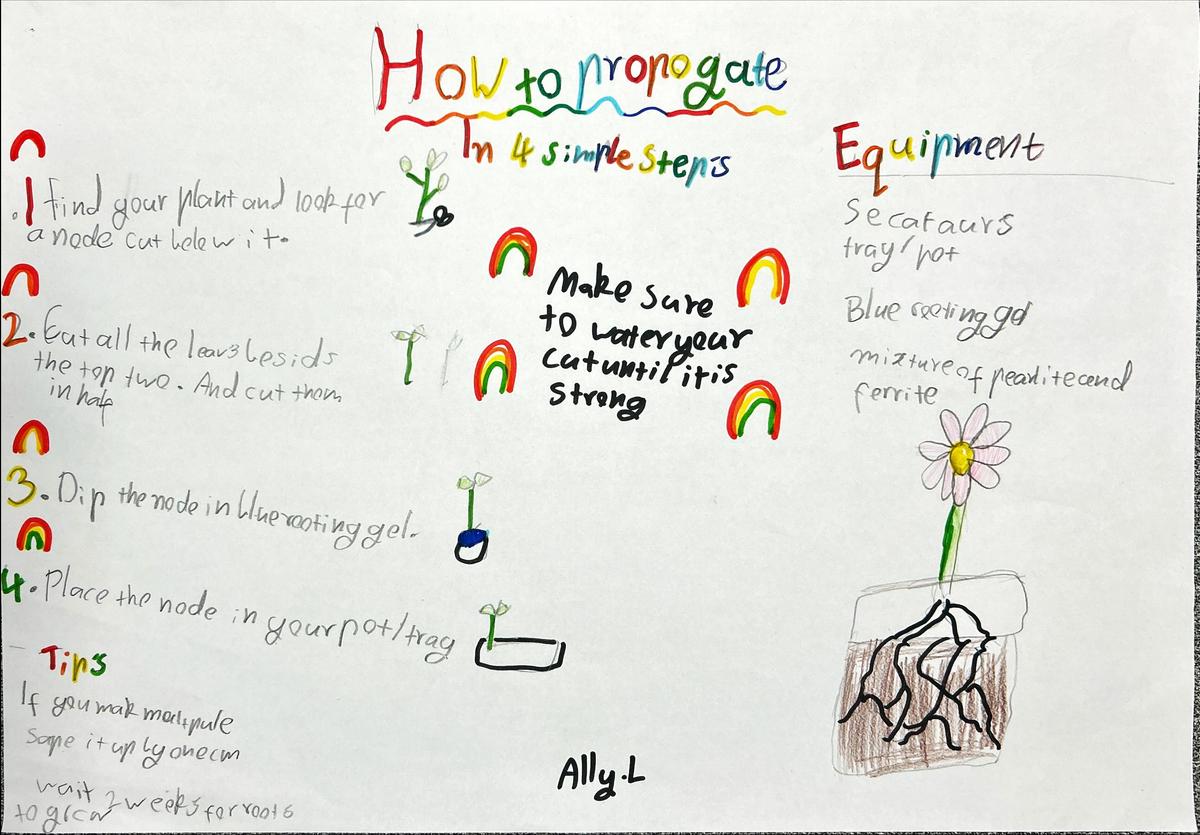 How to propogate
In 4 simple steps
.1 find your plant and look for
a node cut below it.
2. Cut all the leavs besids
the top two. And cut them
in half
3. Dip the node in blue rooting gel.
4. Place the node in your pot/tray
Tips
If you mak multipule
Sape it up by one cm
wait 2 weeks for roots
to grow
Make sure
to water your
cut until it is
strong
Ally.L
Equipment
Secataurs
tray/pot
Blue rooting gel
mixture of pearlite and
ferrite